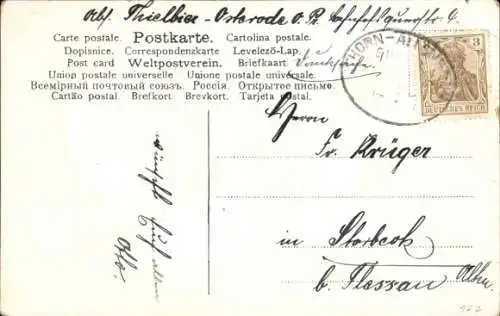 Abs. Thielbier - Osterode o. Pr. Bahnhofs
Carte postale. Postkarte. Cartolina postale.
Dopisnice. Correspondenzkarte Levelező-Lap.
Post card Weltpostverein. Briefkaart
Drucksache
Union postale universelle Unione postale universale.
Всемірный почтовый союзъ. Россия. Открытое письмо.
Cartão postal. Brefkort. Brevkort. Tarjeta postal.
THORN-ALLENSTEIN
3
DEUTSCHES REICH
Herrn
Fr. Krüger
in Storbeck
b. Flessau
Altm.
wünscht Euch allen
Otto.
122